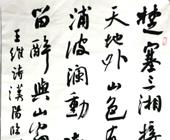 楚塞三湘接
天地外山色有
浦波瀾動遠
留醉與山翁
王維詩漢江臨